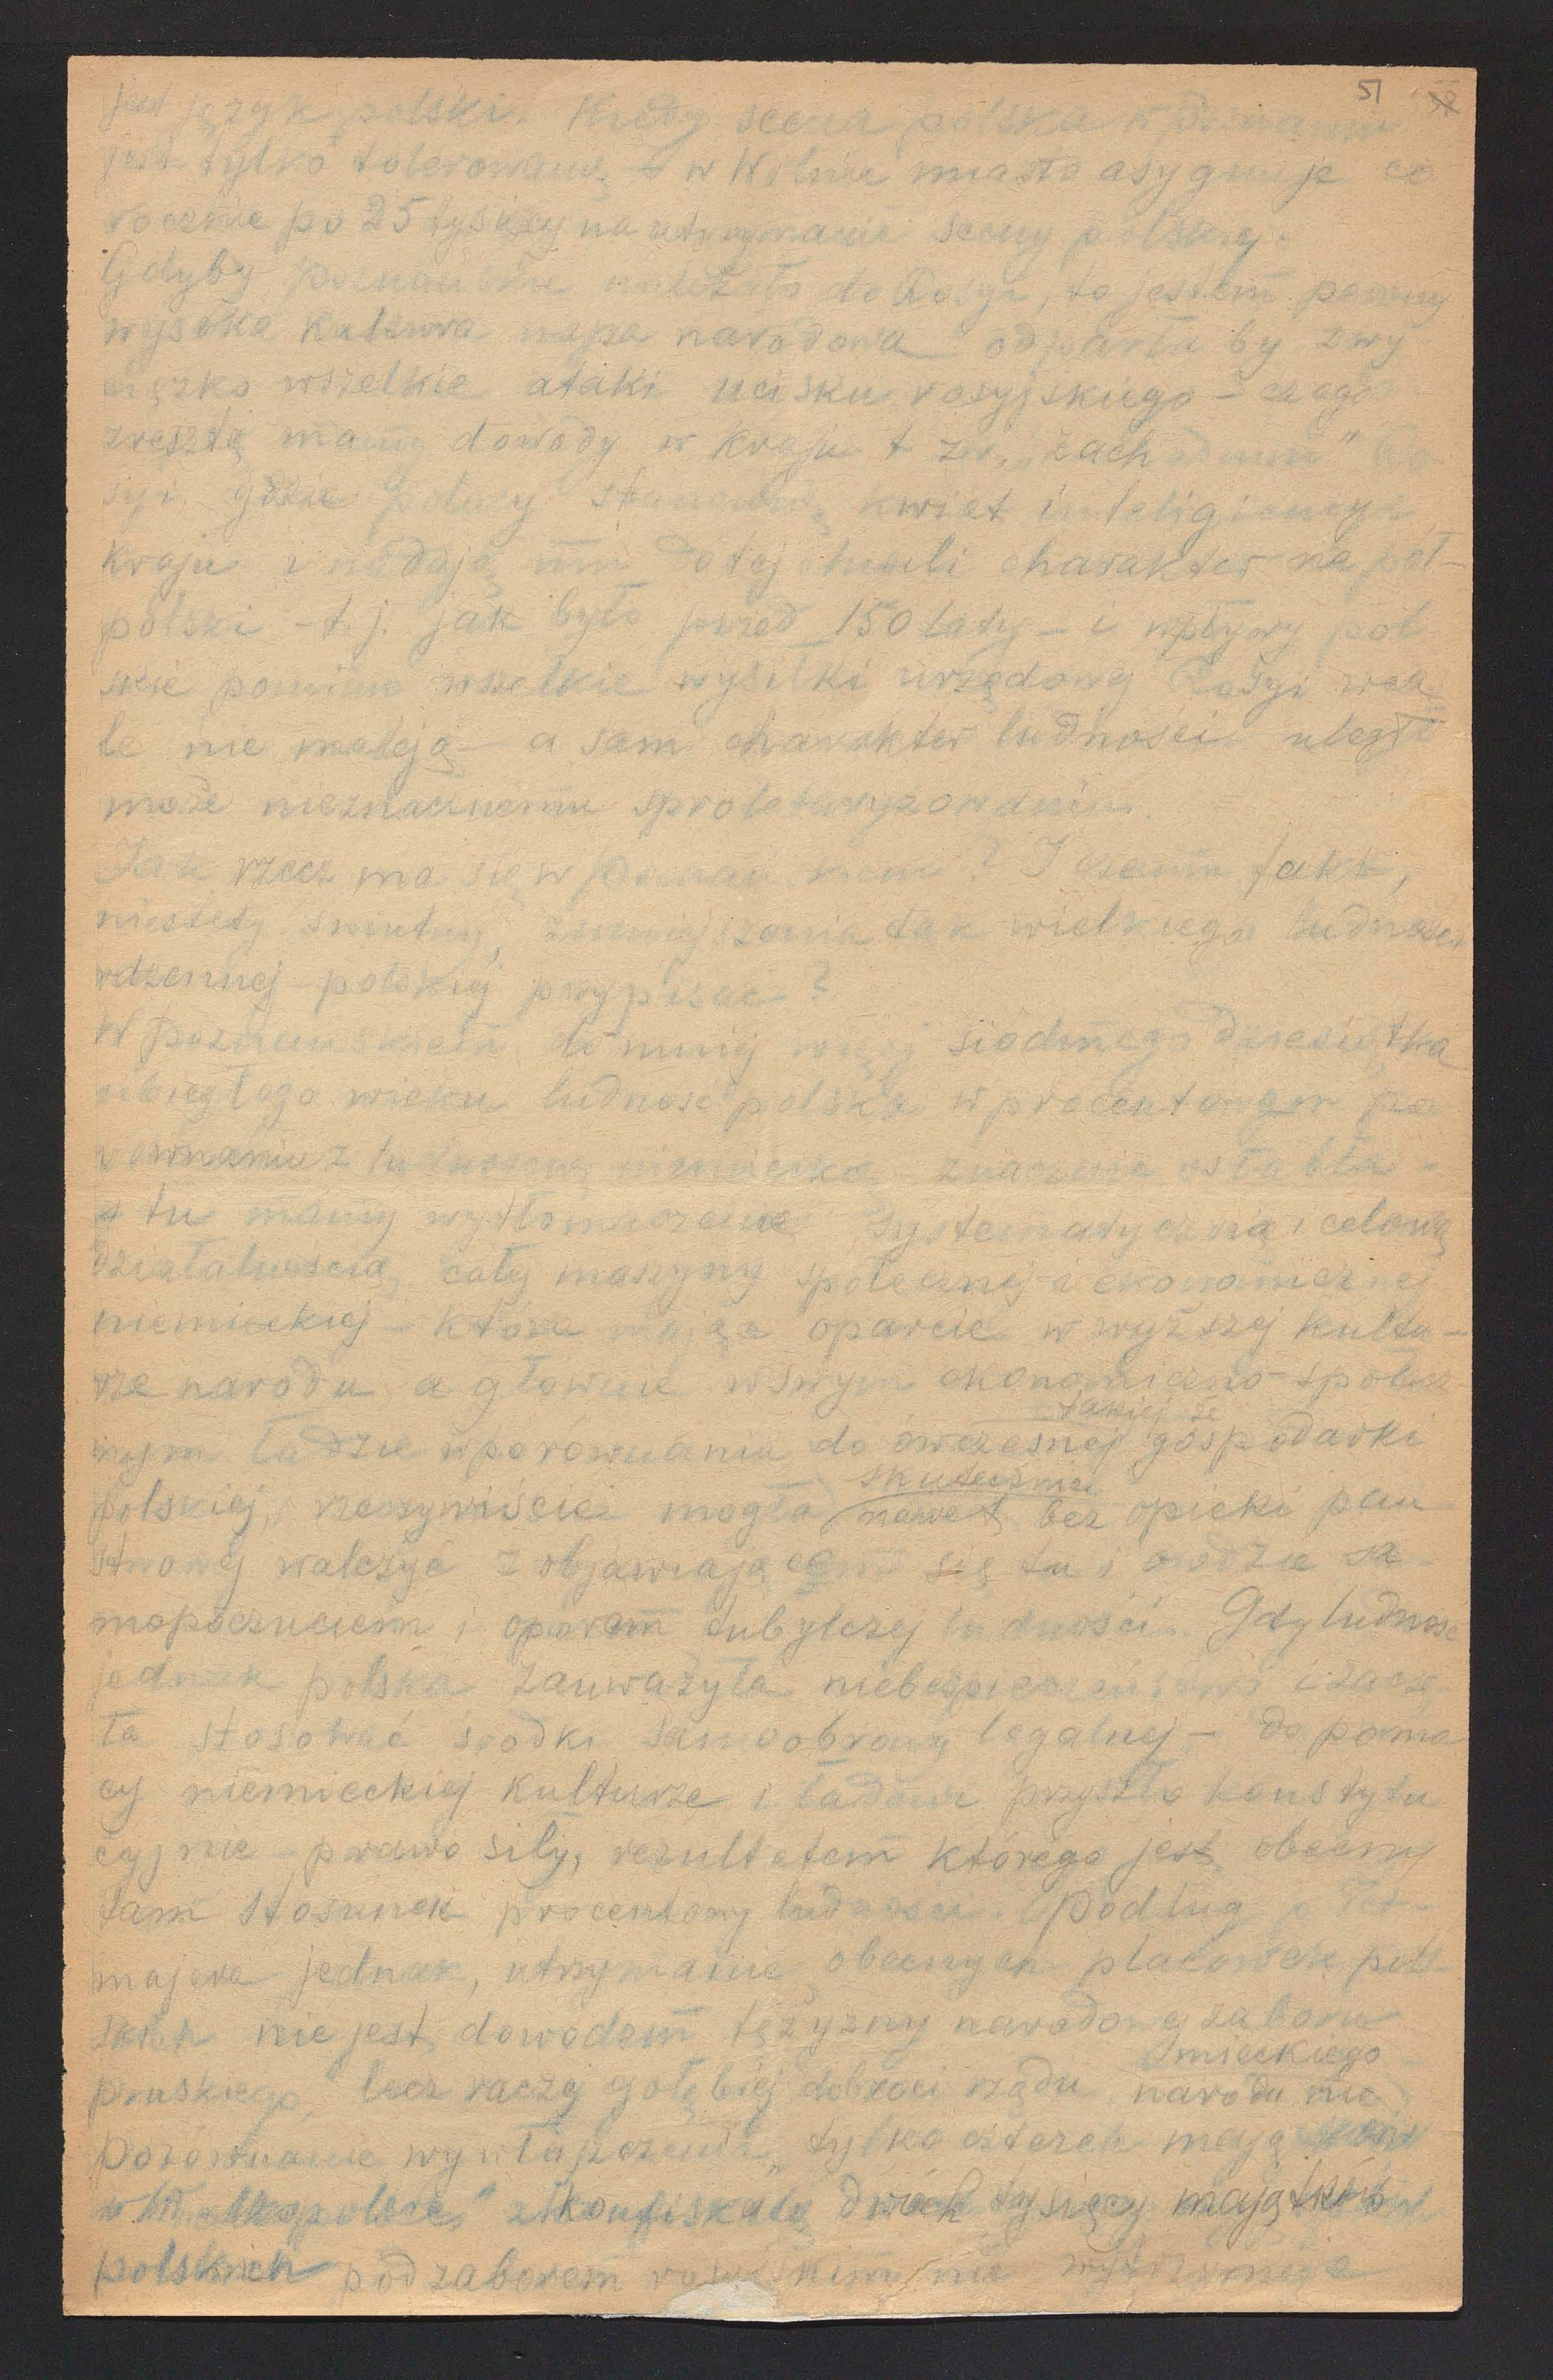 51
jest język polski. Kiedy scena polska w Poznaniu
jest tylko tolerowaną w Wilnie miasto asygnuje co
rocznie po 25 tysięcy na utrzymanie sceny polskiej.
Gdyby Poznańskie należało do Rosyi, to jestem pewny
wysoka kultura napa narodowa odparła by zwy
cięzko wszelkie ataki ucisku rosyjskiego – czego
zresztą mamy dowody w kraju t zw. „zachodnim" Ro
syi, gdzie Polacy stanowią kwiat inteligiencyi
kraju i nadają mu do tej chwili charakter na pół-
polski – t. j. jak było przed 150 laty – i wpływy pol
skie pomimo wszelkie wysiłki urzędowej Rosyi wca
le nie maleją – a sam charakter ludności uległ
może nieznacznemu sproletaryzowaniu.
Jak rzecz ma się w Poznańskiem? I czemu fakt,
niestety smutny, zmniejszania tak wielkiego ludności
rdzennej polskiej przypisać?
W Poznańskiem do mniej więcej siódmego dziesiątka
ubiegłego wieku ludność polska w procentowem po
równaniu z ludnością niemiecką znacznie osłabła –
tu mamy wytłomaczenie systematyczną i celową
działalnością całej maszyny społecznej i ekonomicznej
niemieckiej – która mając oparcie w wyższej kultu-
rze narodu a głownie wswym ekonomiczno-społecz
nym ładzie wporównaniu do ówczesnej gospodarki
takiej że
polskiej, rzeczywiście mogła nawet bez opieki pań
skutecznie
stwowej walczyć z objawiającem się tu i owdzie sa-
mopoczuciem i oporem tubylczej ludności. Gdy ludność
jednak polska zauważyła niebezpieczeństwo i zaczę
ła stosować środki samoobrony legalnej – do pomo
cy niemieckiej kulturze i ładowi przyszło konstytu
cyjnie prawo siły, rezultatem którego jest obecny
tam stosunek procentowy ludności. Podług p Tet-
majera jednak, utrzymanie obecnych placówek pol
skich nie jest dowodem tężyzny narodowej zaboru
pruskiego, lecz raczej gołębiej dobroci rządu narodu nie
mieckiego
Porównanie wywłaszczenia „tylko czterech mają
w Wielkopolsce" z konfiskatą dwóch tysięcy majątków
polskich pod zaborem rosyjskim nie wytrzymuje